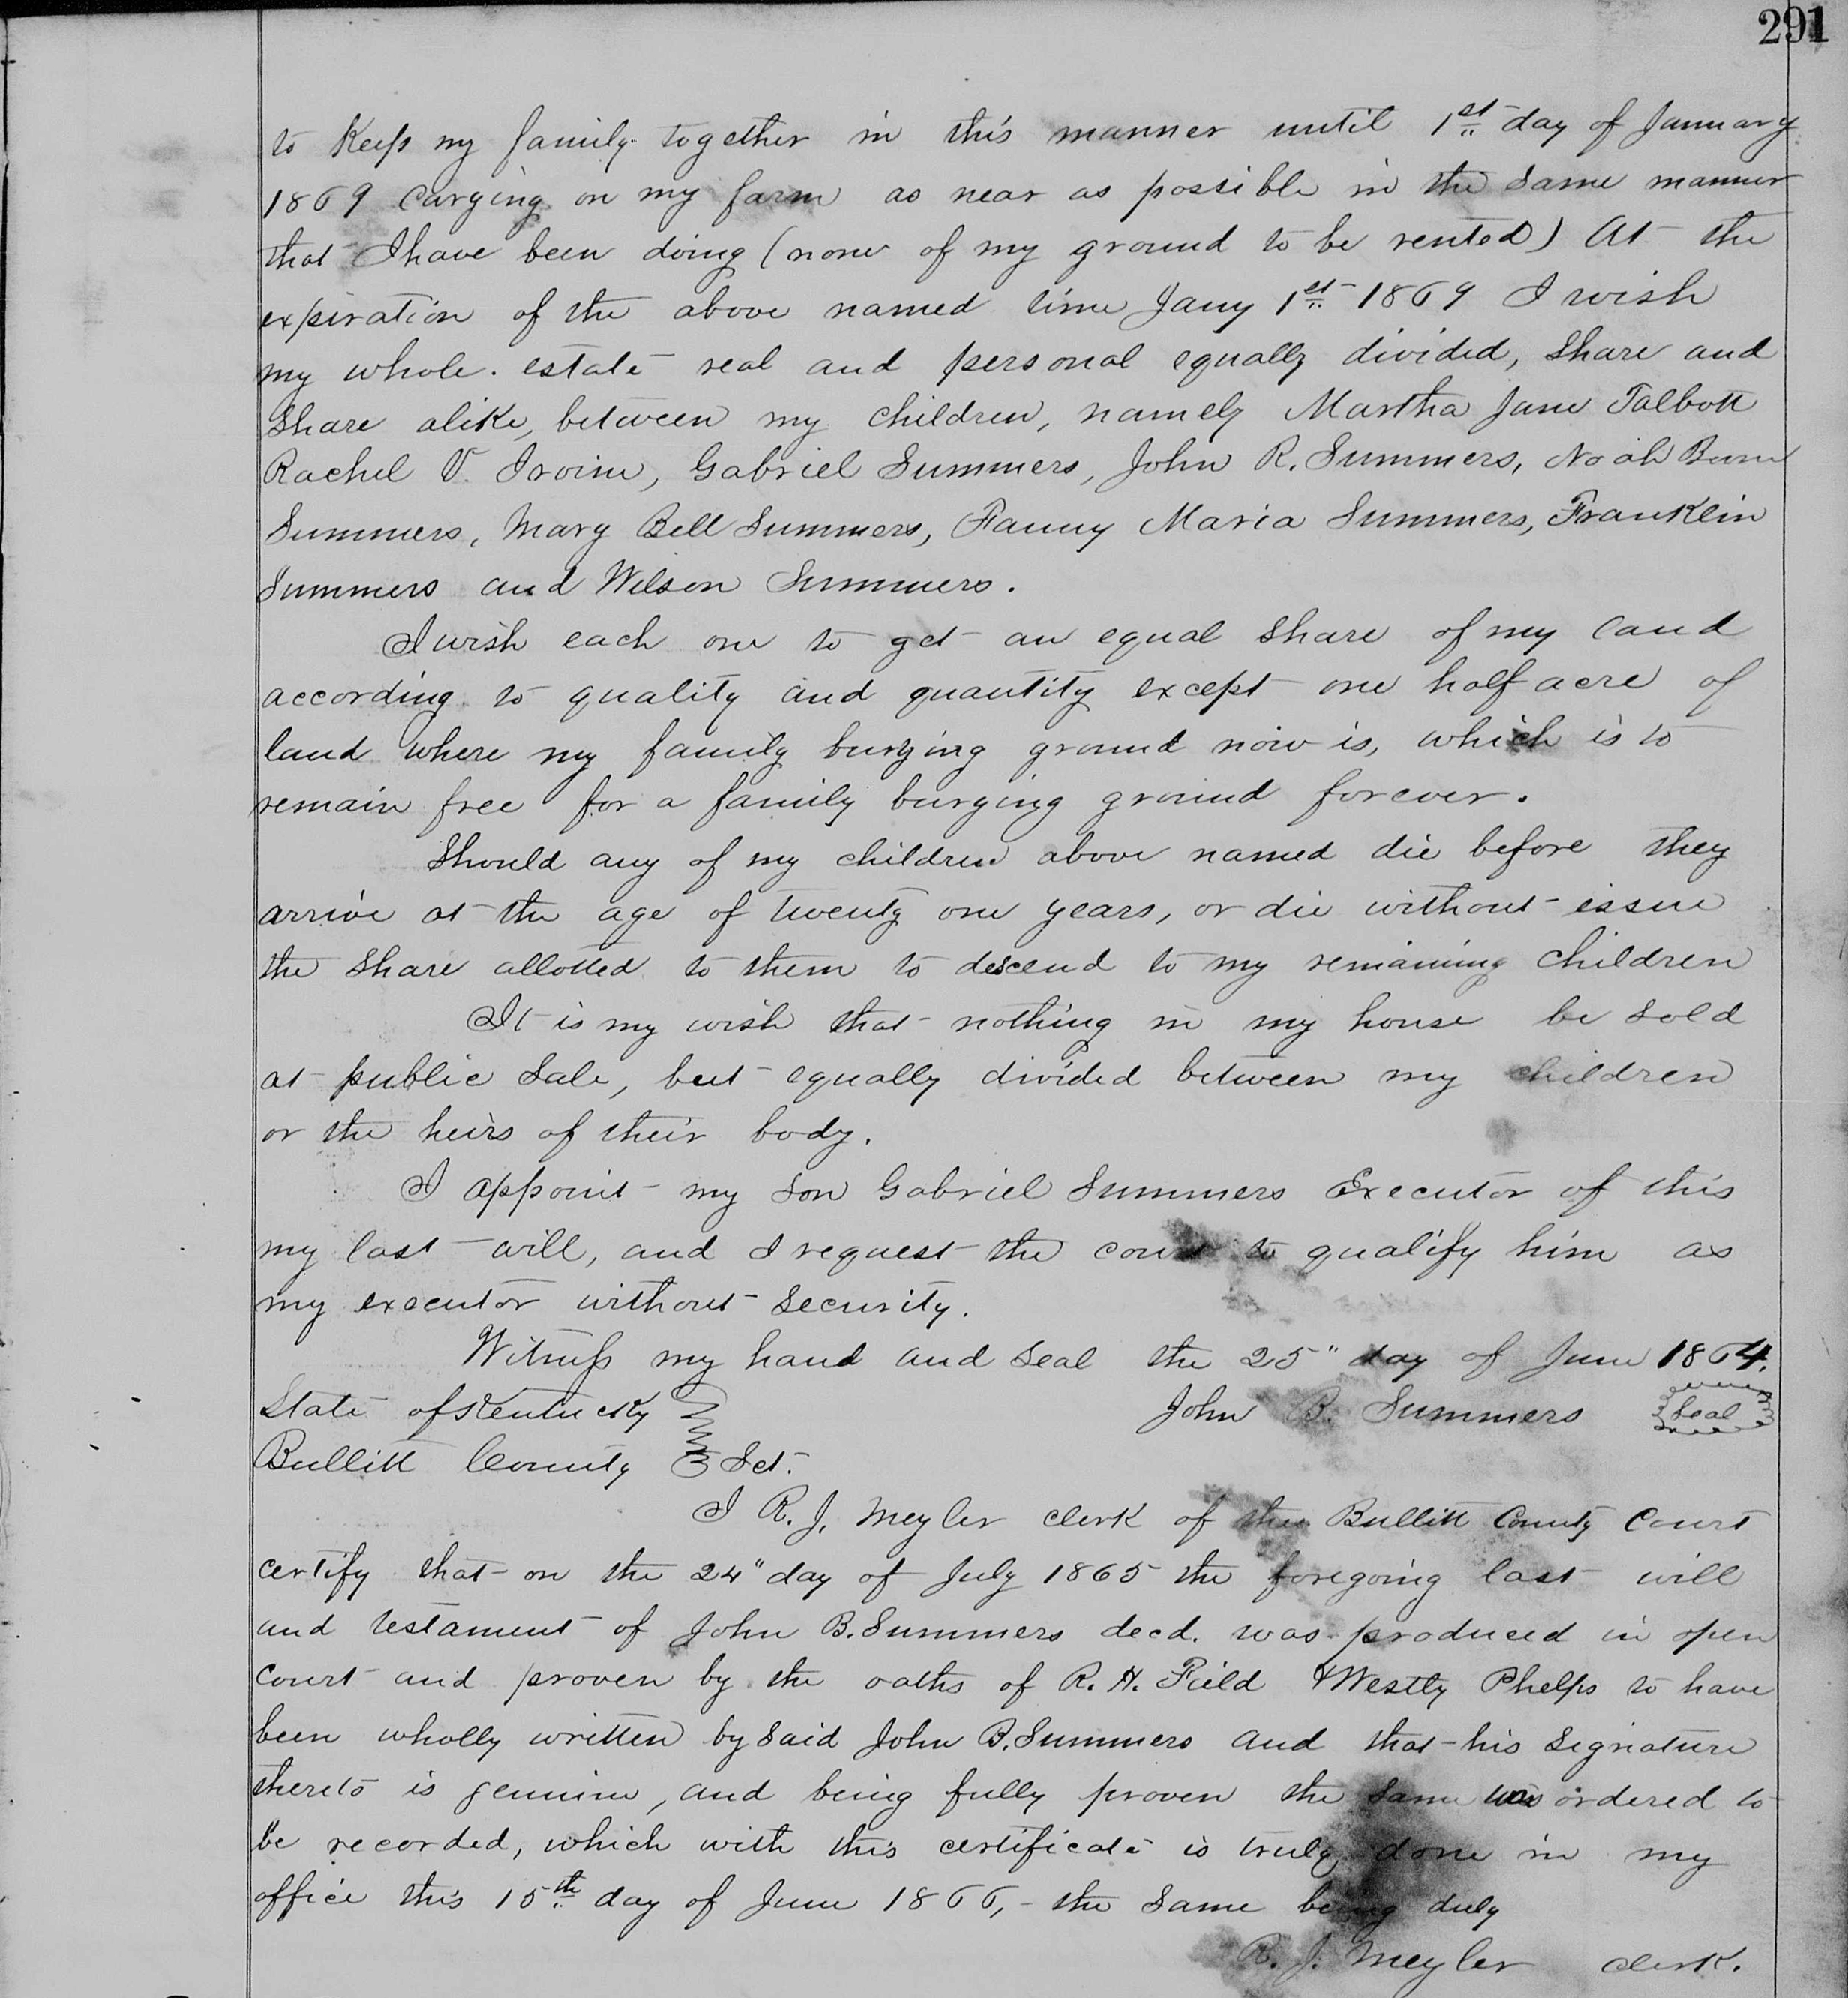 291
to Keep my family together in this manner until 1st day of January
1869 carying on my farm as near as possible in the same manner
that I have been doing (none of my ground to be rented) At the
expiration of the above named time Jany 1st 1869 I wish
my whole estate real and personal equally divided, share and
share alike, between my children, namely Martha Jane Talbott
Rachel V. Irvine, Gabriel Summers, John R. Summers, Noah
Summers, Mary Bell Summers, Fanny Maria Summers, Franklin
Summers and Wilson Summers.
I wish each one to get an equal share of my land
according to quality and quantity except one half acre of
land where my family burying ground now is, which is to
remain free for a family burying ground forever.
Should any of my children above named die before they
arrive at the age of twenty one years, or die without issue
the share allotted to them to descend to my remaining children
It is my wish that nothing in my house be sold
at public sale, but equally divided between my children
or the heirs of their body.
I appoint my son Gabriel Summers Executor of this
my last will, and I request the court to qualify him as
my executor without security.
Witness my hand and seal the 25" day of June 1864.
State of Kentucky John B. Summers Seal
Bullitt County Sct.
I R. J. Meyler clerk of the Bullitt County Court
certify that on the 24" day of July 1865 the foregoing last will
and testament of John B. Summers decd. was produced in open
court and proven by the oaths of R. H. Field & Westly Phelps to have
been wholly written by said John B. Summers and that his signature
thereto is genuine, and being fully proven the same was ordered to
be recorded, which with this certificate is truly done in my
office this 15th day of June 1866, - the same being duly
R. J. Meyler clerk.